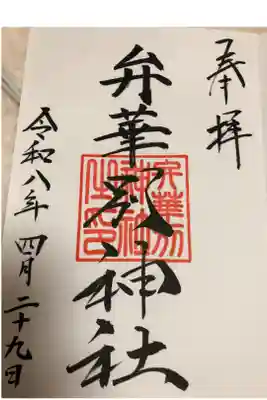 奉拝
弁華別神社
弁華別
神社
之印
令和八年 四月二十九日